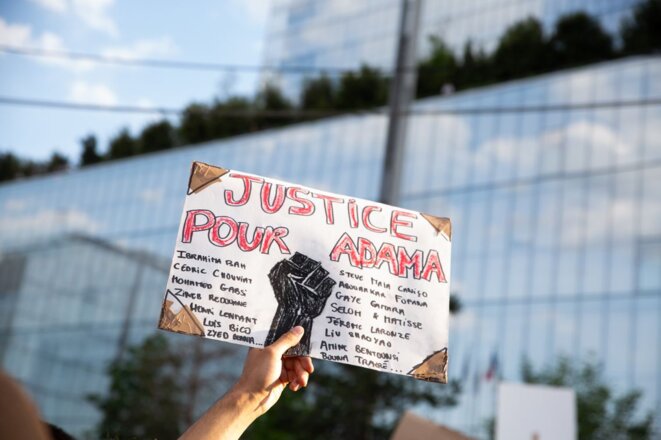 JUSTICE
POUR ADAMA
IBRAHIMA BAH
CÉDRIC CHOUVIAT
MOHAMED GABSI
ZINEB REDOUANE
HENRI LENFANT
LUIS BICO
ZYED
STEVE MAIA CANIÇO
ABOUBAKAR FOFANA
GAYE CAMARA
SELOM & MATISSE
JÉRÔME LARONZE
LIU SHAOYAO
AMINE BENTOUNSI
BOUNA TRAORÉ...